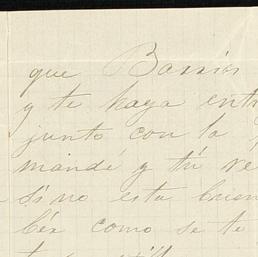 que Barrios
y te haya entr
junto con la
mandé y tú ve
si no esta buen
ber como se te